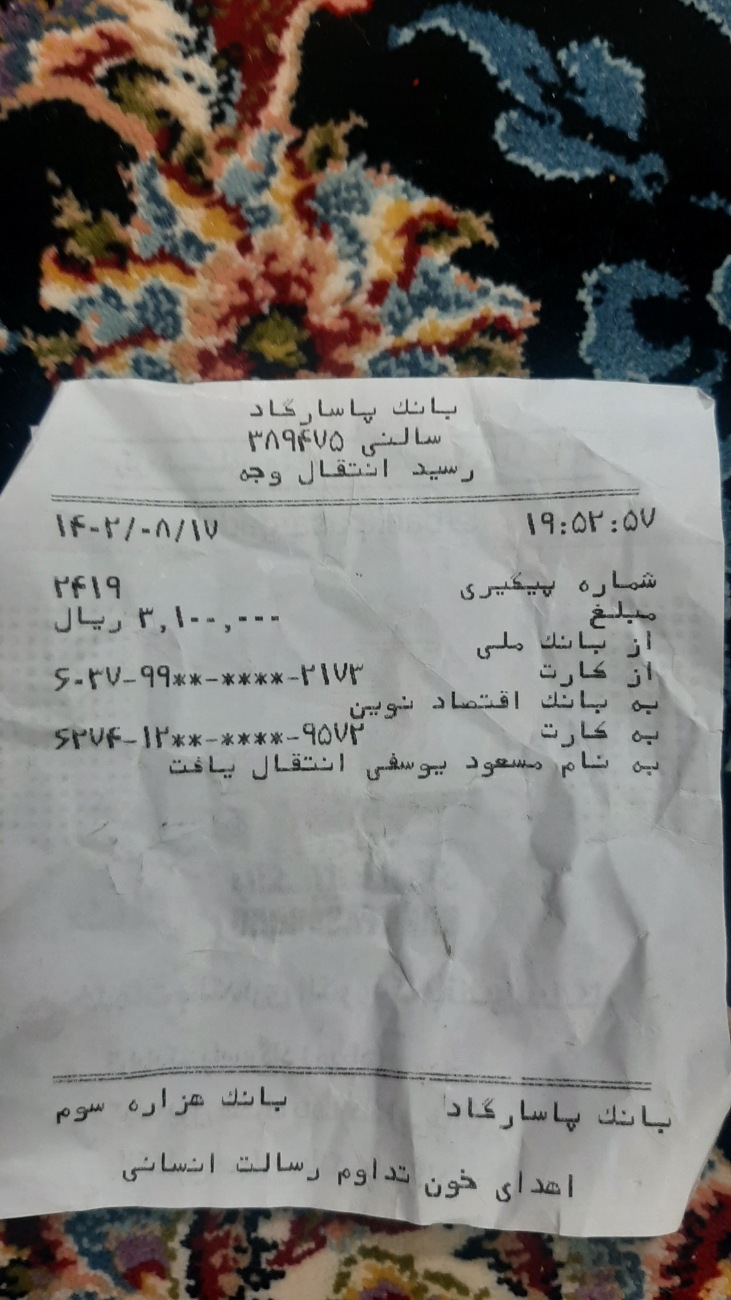 بانك پاسارگاد
سالنی ۳۸۹۴۷۵
رسید انتقال وجه
۱۴۰۲/۰۸/۱۷ ۱۹:۵۲:۵۷
شماره پیگیری ۲۴۱۹
مبلغ ۳,۱۰۰,۰۰۰ ریال
از بانك ملی
از کارت ۶۰۳۷-۹۹**-****-۲۱۷۳
به بانك اقتصاد نوین
به کارت ۶۲۷۴-۱۲**-****-۹۵۷۲
به نام مسعود یوسفی انتقال یافت
بانك پاسارگاد بانك هزاره سوم
اهدای خون تداوم رسالت انسانی